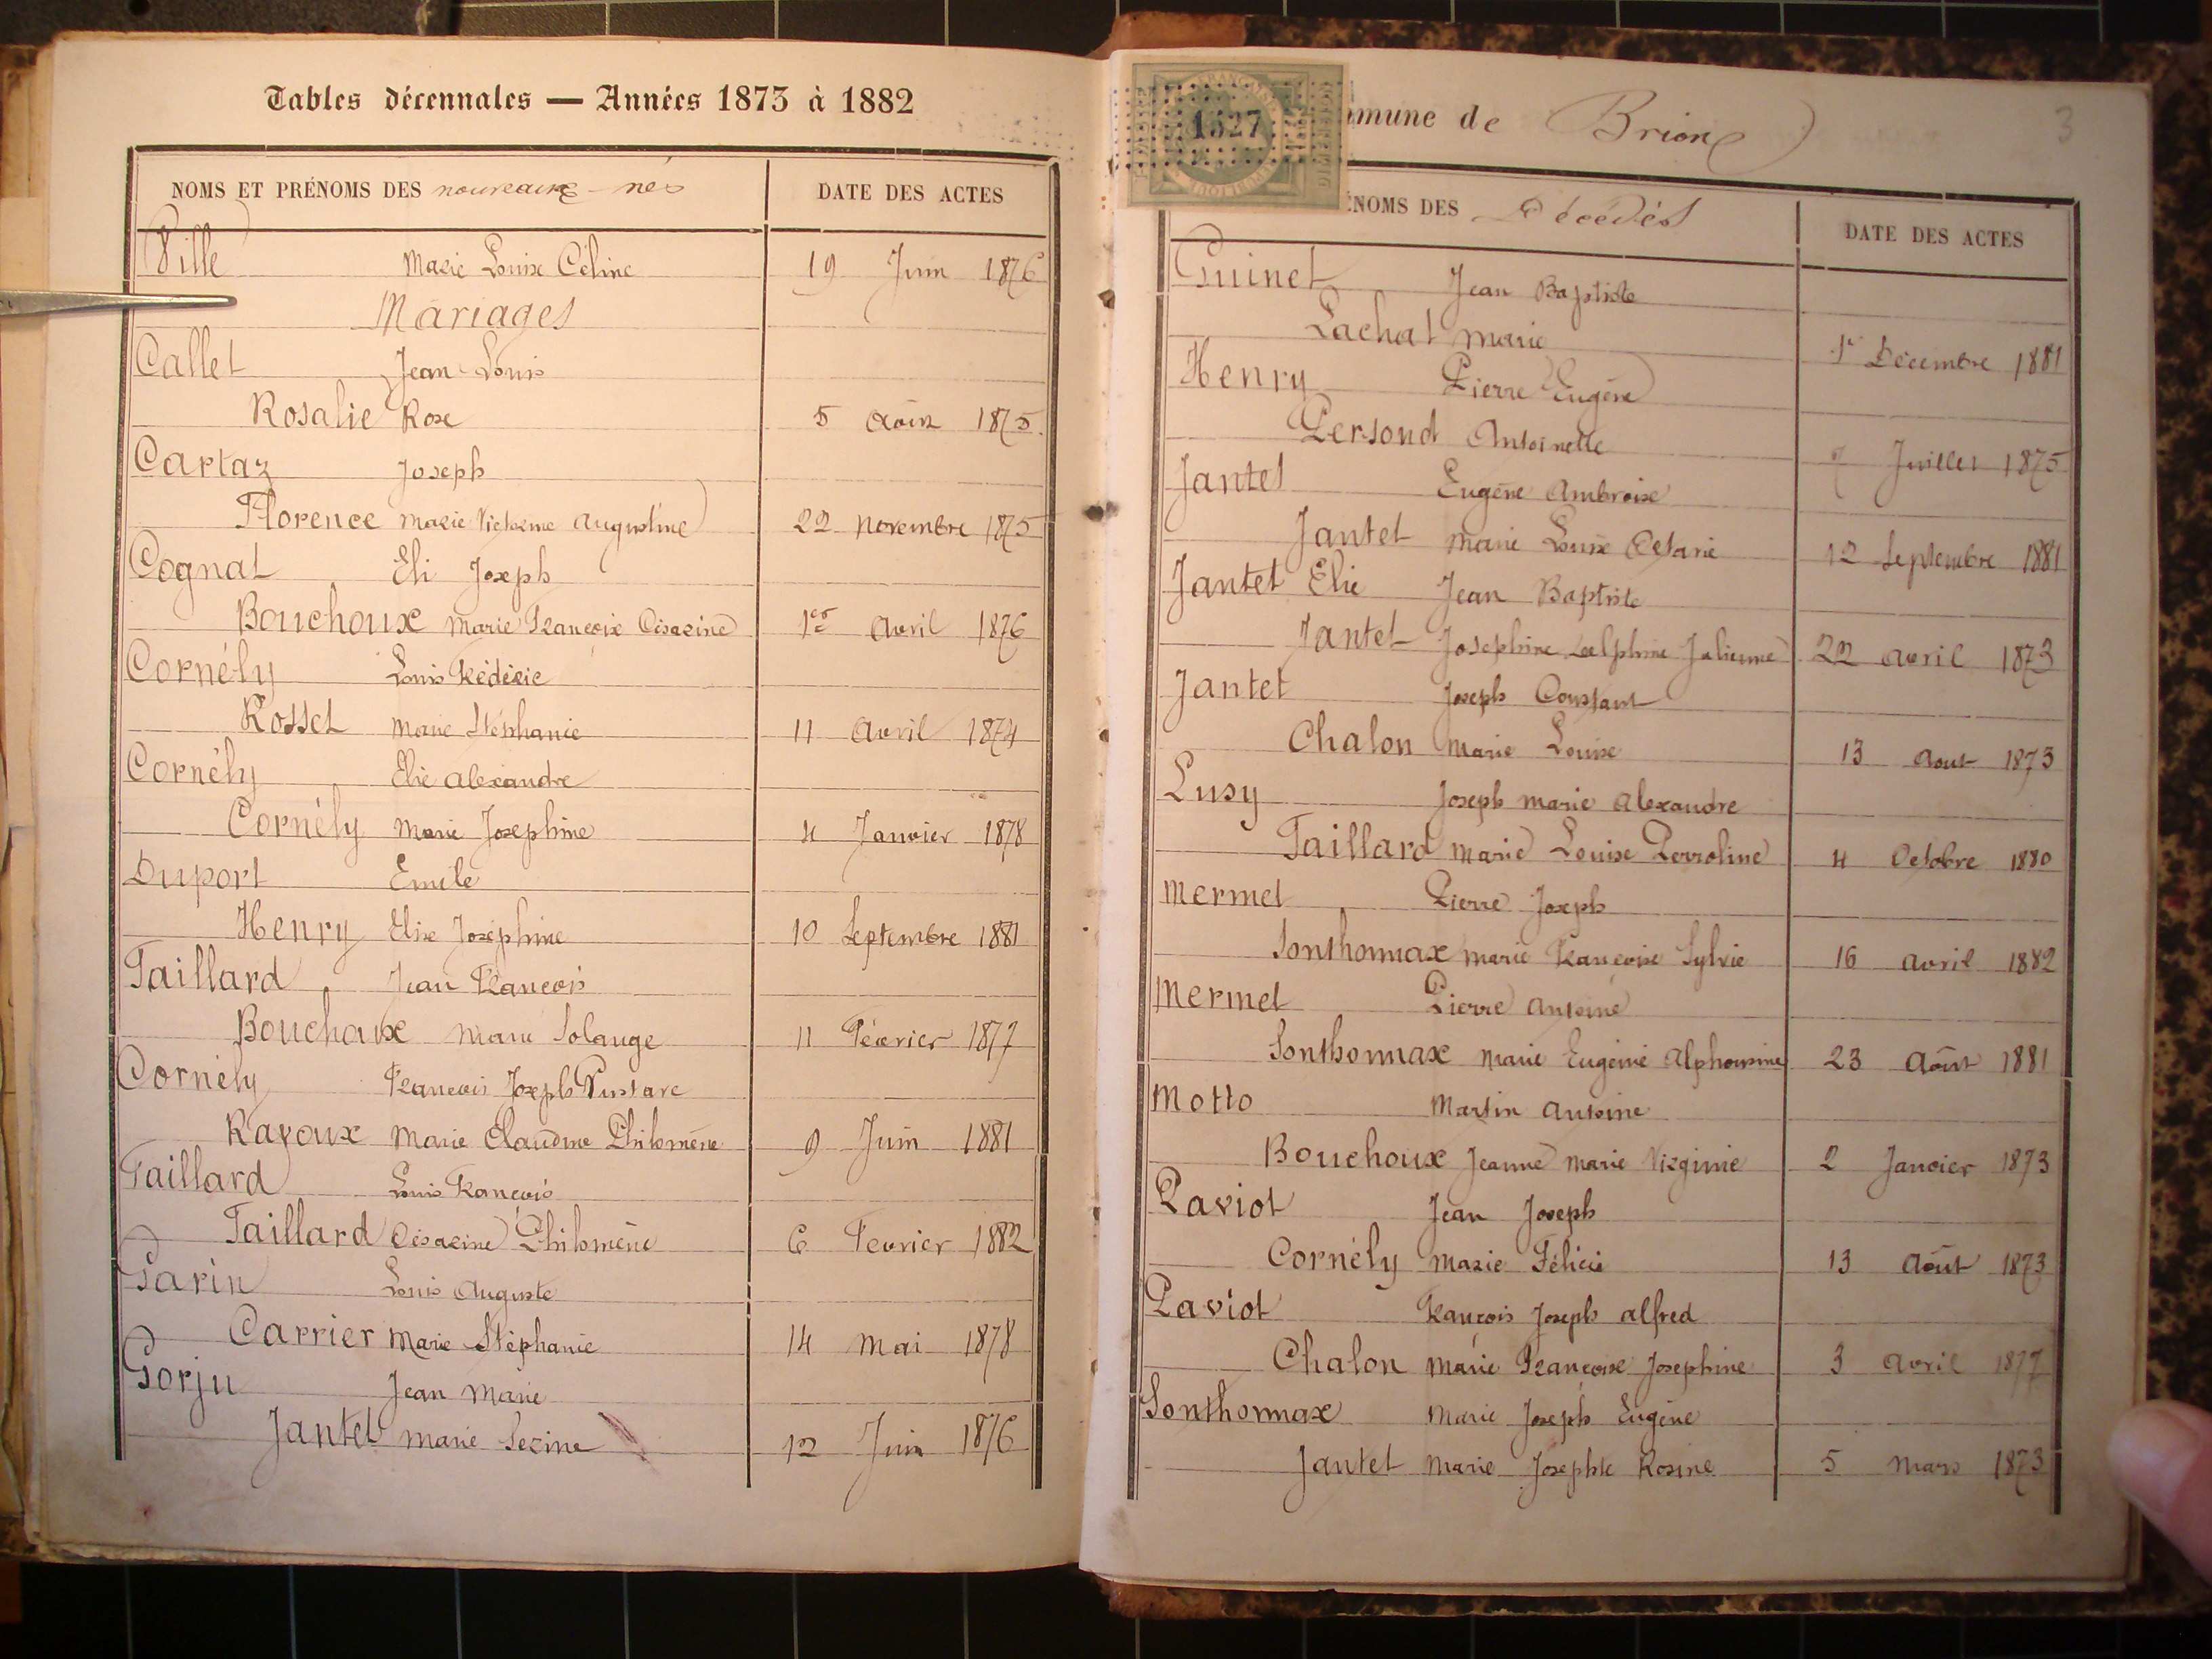 Tables décennales — Années 1873 à 1882
NOMS ET PRÉNOMS DES nouveaux-nés DATE DES ACTES
Ville Marie Louise Céline 19 Juin 1876
Mariages
Callet Jean Louis
Rosalie Rose 5 Août 1875
Cartaz Joseph
Florence Marie Victorine Augustine 22 Novembre 1875
Cognat Eli Joseph
Bouchoux Marie Françoise Césarine 1er Avril 1876
Cornély Louis Frédéric
Rosset Marie Stéphanie 11 Avril 1874
Cornély Elie Alexandre
Cornély Marie Josephine 4 Janvier 1878
Duport Emile
Henry Elise Joséphine 10 Septembre 1881
Taillard Jean François
Bouchoux Marie Solange 11 Février 1877
Cornély François Joseph Gustave
Ravoux Marie Claudine Philomène 9 Juin 1881
Taillard Louis François
Taillard Césarine Philomène 6 Fevrier 1882
Garin Louis Auguste
Carrier Marie Stéphanie 14 Mai 1878
Gorju Jean Marie
Jantet Marie 12 Juin 1876
1527
mmune de Brion
3
ÉNOMS DES Décédés DATE DES ACTES
Guinet Jean Baptiste
Lachat Marie 1r Décembre 1881
Henry Pierre Eugène
Persond Antoinette 7 Juillet 1875
Jantet Eugène Ambroise
Jantet Marie Louise Césarie 12 Septembre 1881
Jantet Elie Jean Baptiste
Jantet Josephine Delphine Julienne 22 Avril 1873
Jantet Joseph Constant
Chalon Marie Louise 13 Aout 1873
Lusy Joseph Marie Alexandre
Taillard Marie Louise Perroline 4 Octobre 1880
Mermet Pierre Joseph
Sonthonnax Marie Françoise Sylvie 16 Avril 1882
Mermet Pierre Antoine
Sonthonnax Marie Eugénie Alphonsine 23 Août 1881
Motto Martin Antoine
Bouchoux Jeanne Marie Virginie 2 Janvier 1873
Paviot Jean Joseph
Cornély Marie Félicie 13 Août 1873
Paviot François Joseph Alfred
Chalon Marie Françoise Josephine 3 Avril 1877
Sonthonnax Marie Joseph Eugène
Jantet Marie Josephte Rosine 5 Mars 1873